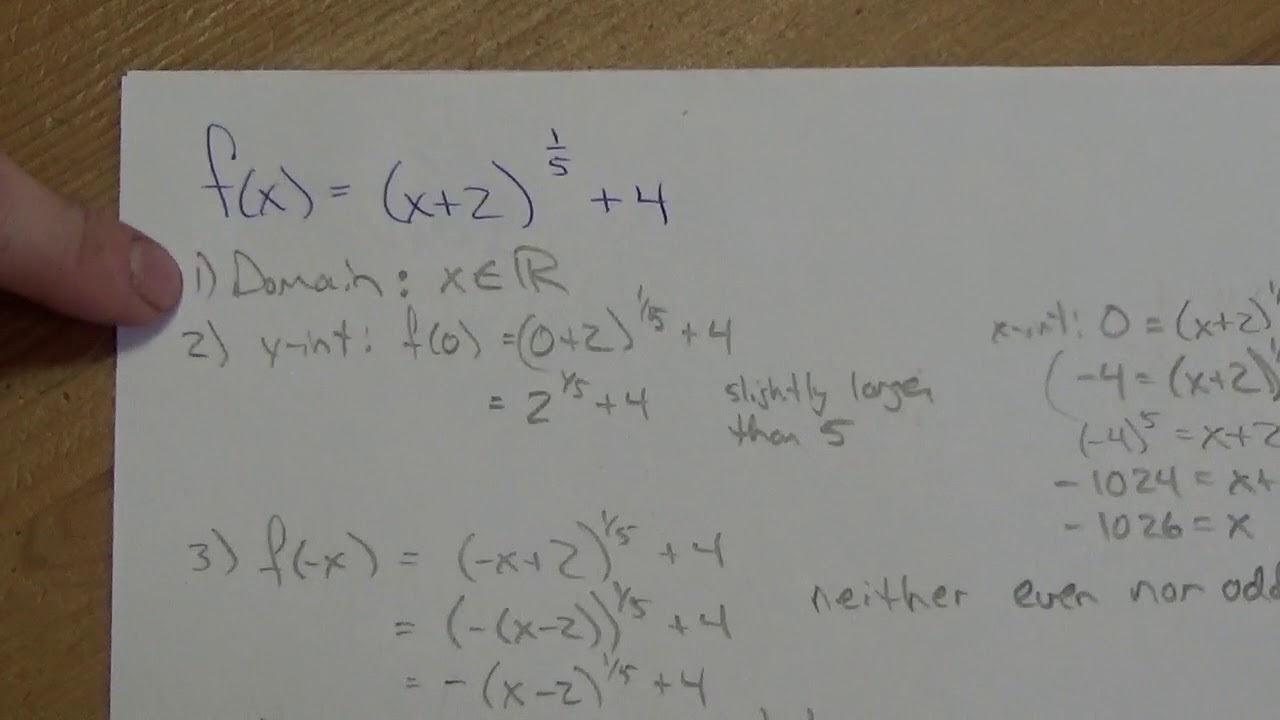 f(x) = (x+2)^(1/5) + 4
1) Domain: x ∈ ℝ
2) y-int: f(0) = (0+2)^(1/5) + 4
= 2^(1/5) + 4
slightly larger
than 5
x-int: 0 = (x+2)
(-4 = (x+2)
(-4)^5 = x+2
-1024 = x+
-1026 = x
3) f(-x) = (-x+2)^(1/5) + 4
= (-(x-2))^(1/5) + 4
= -(x-2)^(1/5) + 4
neither even nor odd